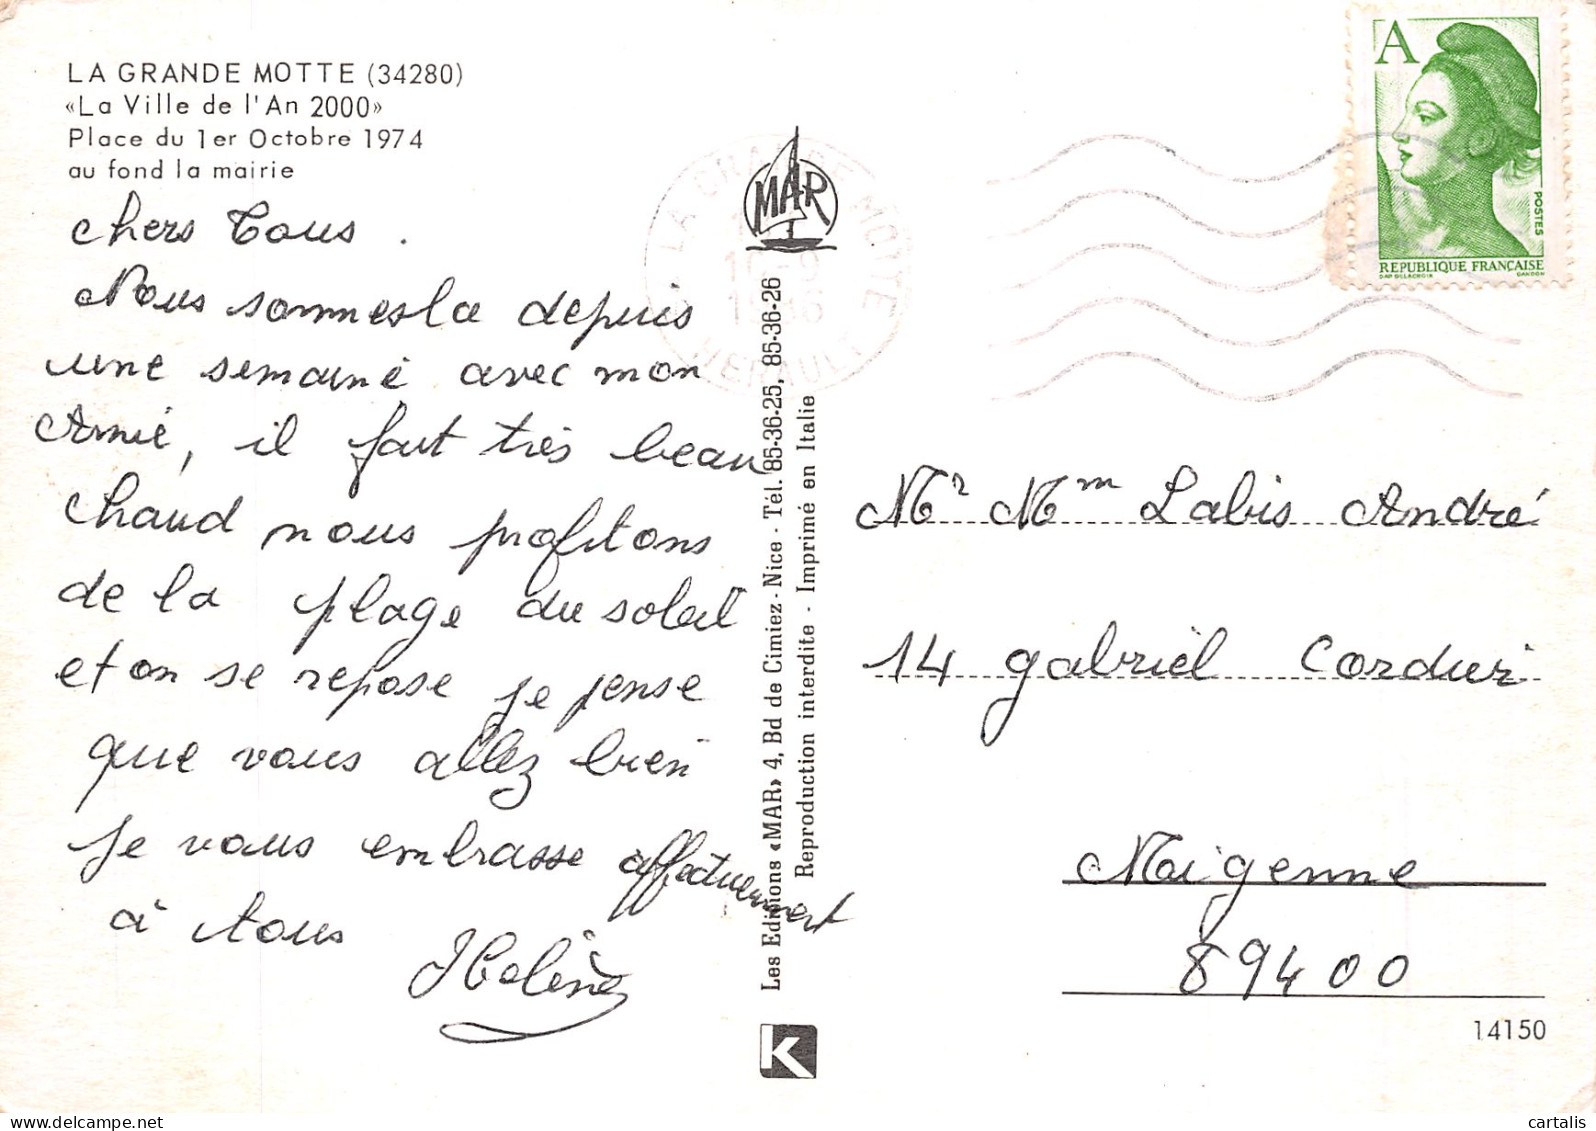 LA GRANDE MOTTE (34280)
«La Ville de l'An 2000»
Place du 1er Octobre 1974
au fond la mairie
chers Tous .
Nous sommes la depuis
une semaine avec mon
Amie, il fait très beau
chaud nous profitons
de la plage du soleil
et on se repose je pense
que vous allez bien
je vous embrasse affectueusement
à tous
Helène
MAR
LA GRANDE MOTTE
10-9
1986
HERAULT
Les Editions «MAR» 4, Bd de Cimiez - Nice - Tél. 85-36-25, 85-36-26
Reproduction interdite - Imprimé en Italie
K
A
POSTES
REPUBLIQUE FRANÇAISE
DAP DELACROIX GANDON
Mr Mm Labis André
14 gabriel Corduri
Migenne
89400
14150
delcampe.net
cartalis